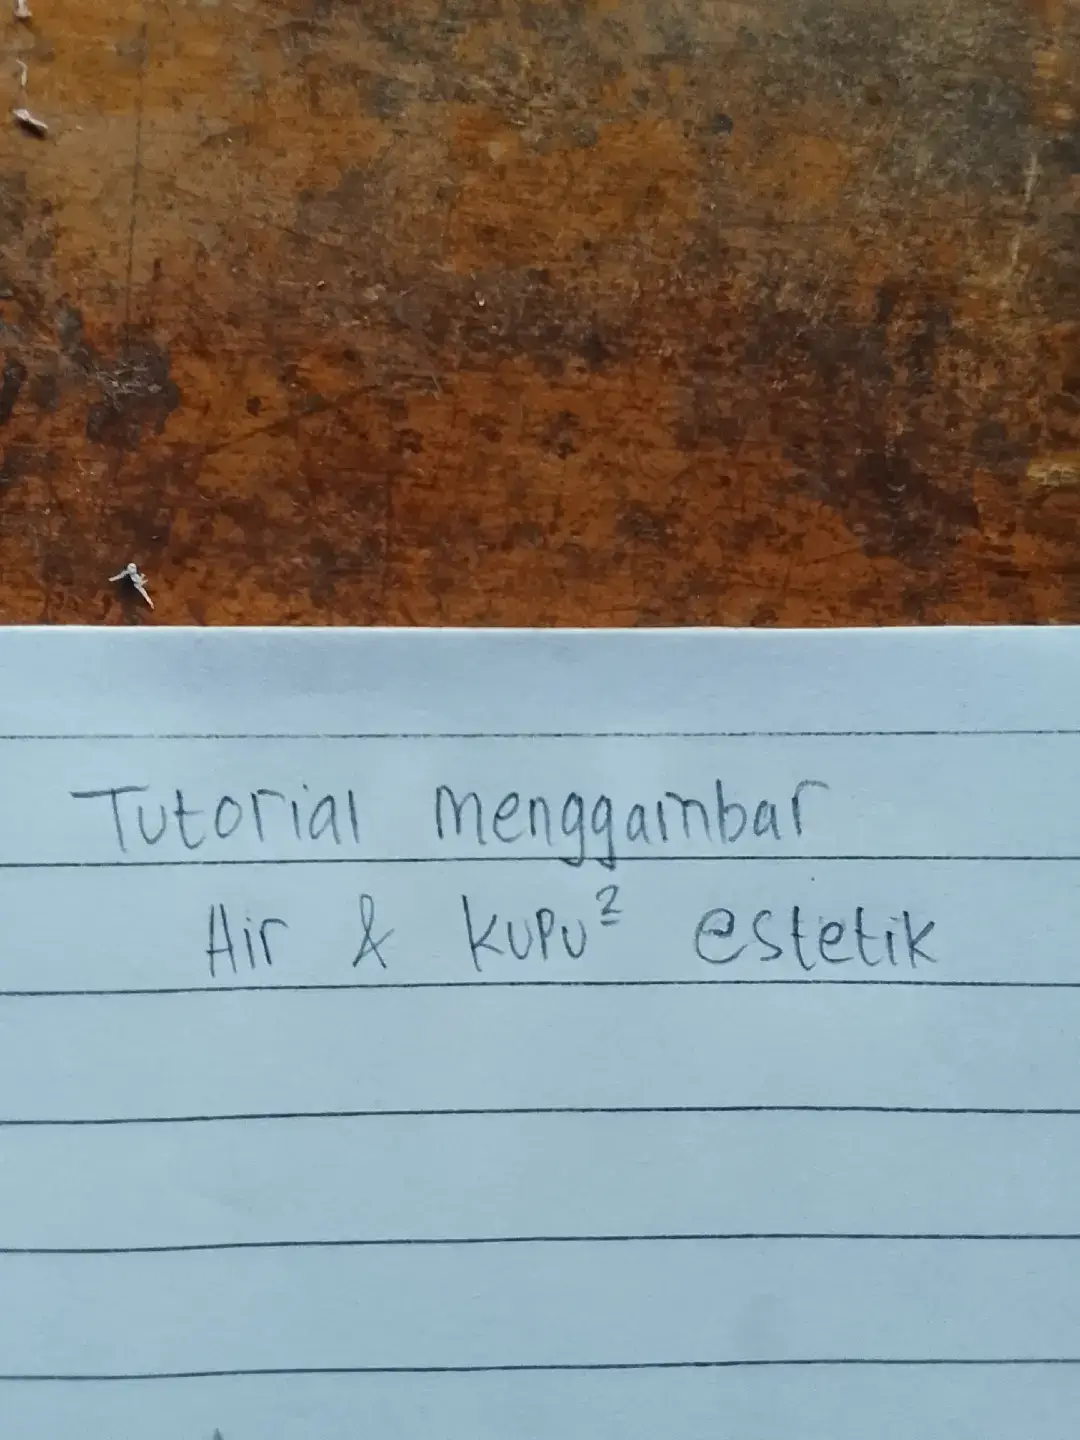 Tutorial menggambar
Air & kupu² estetik